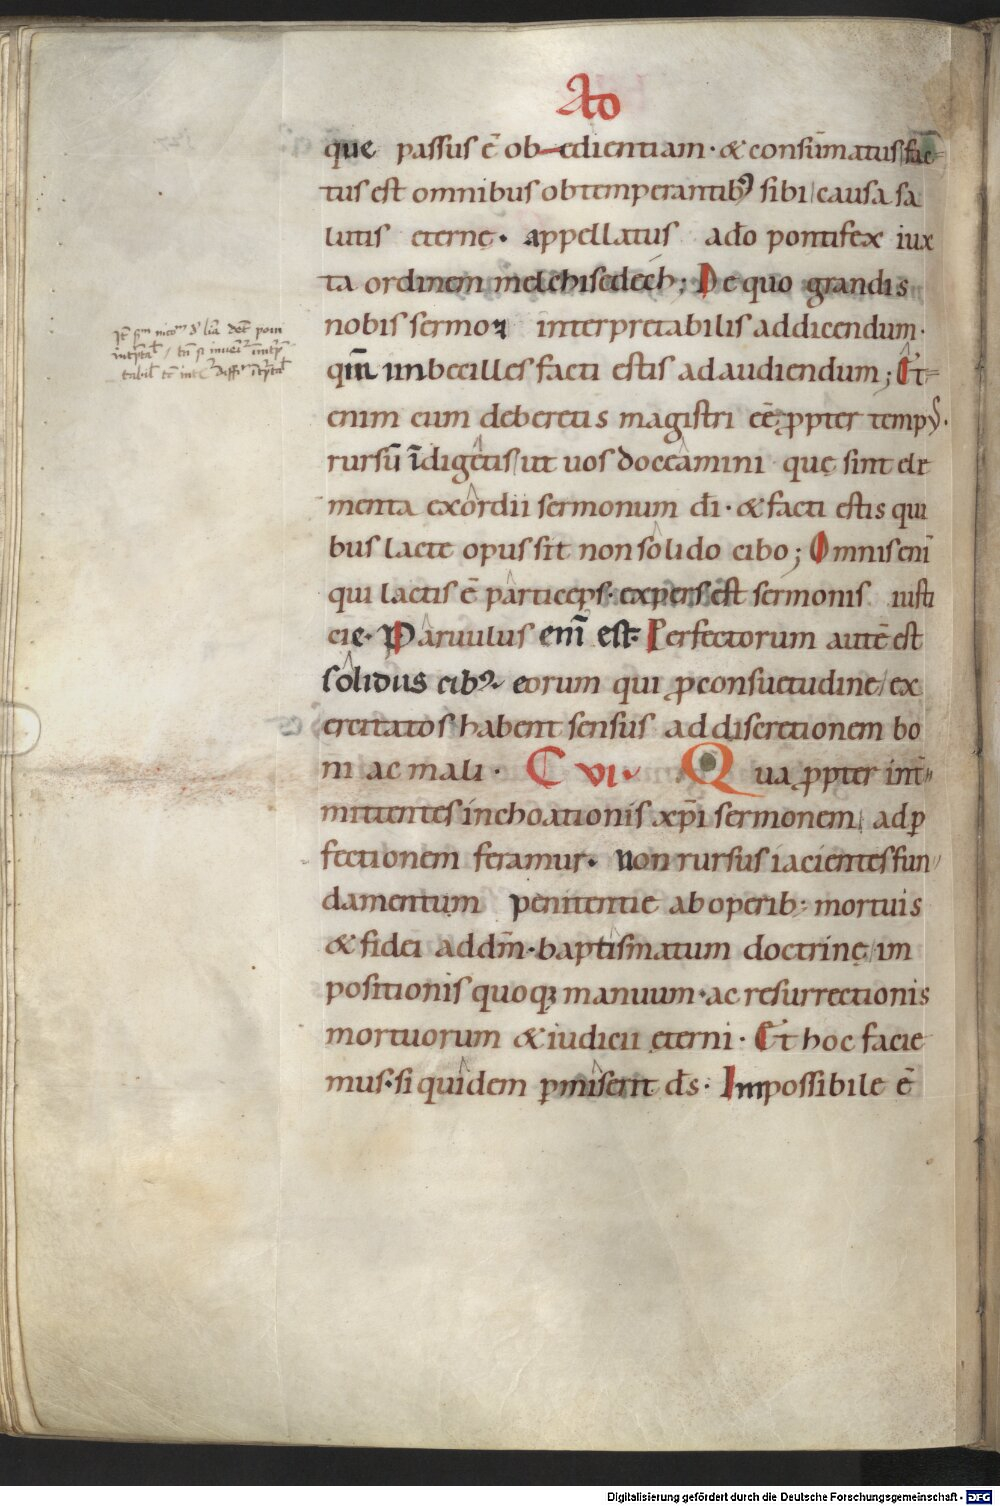 Ad
que passus ē ob edientiam · & consūmatus fac
tus est omnibus obtemperantibꝰ sibi causa sa
lutis eternę · appellatus ado pontifex iux
ta ordinem melchisedech ; De quo grandis
nobis sermo & interpretabilis ad dicendum ·
qm̄ imbecilles facti estis ad audiendum ; Et
enim cum deberetis magistri eē ꝓpter tempꝰ ·
rursū īdigetis ut uos doceamini quę sint ele
menta exordii sermonum dī · & facti estis qui
bus lacte opus sit non solido cibo ; Omnis enī
qui lactis ē particeps · expers est sermonis iusti
cie · Paruulus enī est · Perfectorum autē est
solidus cibꝰ · eorum qui ꝓ consuetudine ex
ercitatos habent sensus ad discretionem bo
ni ac mali · C VI · Qua ꝓpter int̄
mittentes inchoationis xp̄i sermonem ad ꝑ
fectionem feramur · non rursus iacientes fun
damentum penitentie ab operib: mortuis
& fidei ad dm̄ · baptismatum doctrinę im
positionis quoqꝫ manuum · ac resurrectionis
mortuorum & iudicii ęterni · Et hoc facie
mus · si quidem ꝑmiserit ds̄ · Impossibile ē
Digitalisierung gefördert durch die Deutsche Forschungsgemeinschaft - DFG